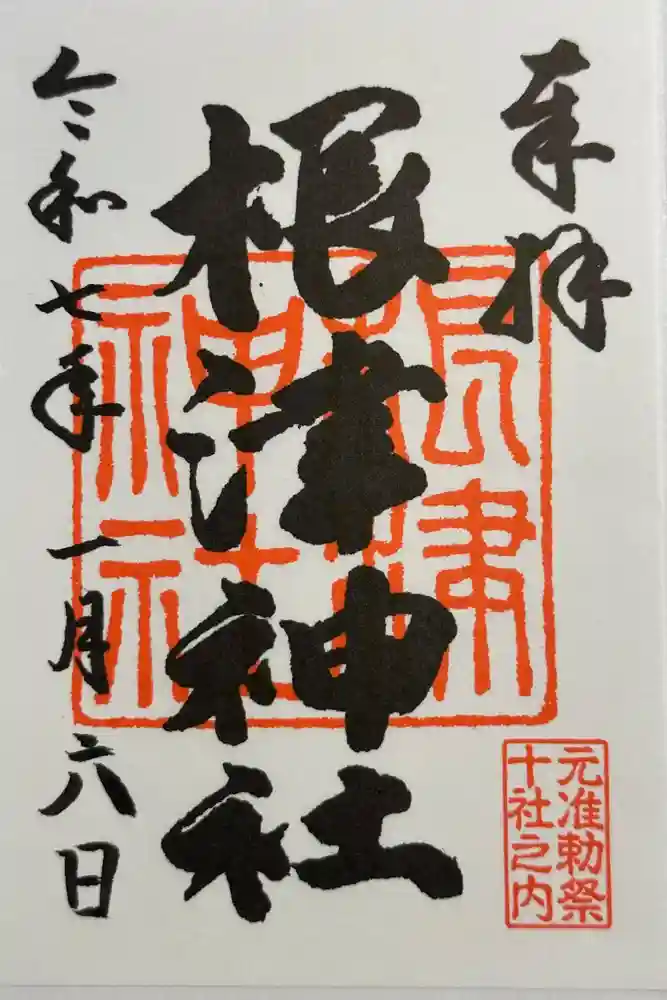 奉拝
根津神社
根津神社
元准勅祭
十社之内
令和七年一月六日